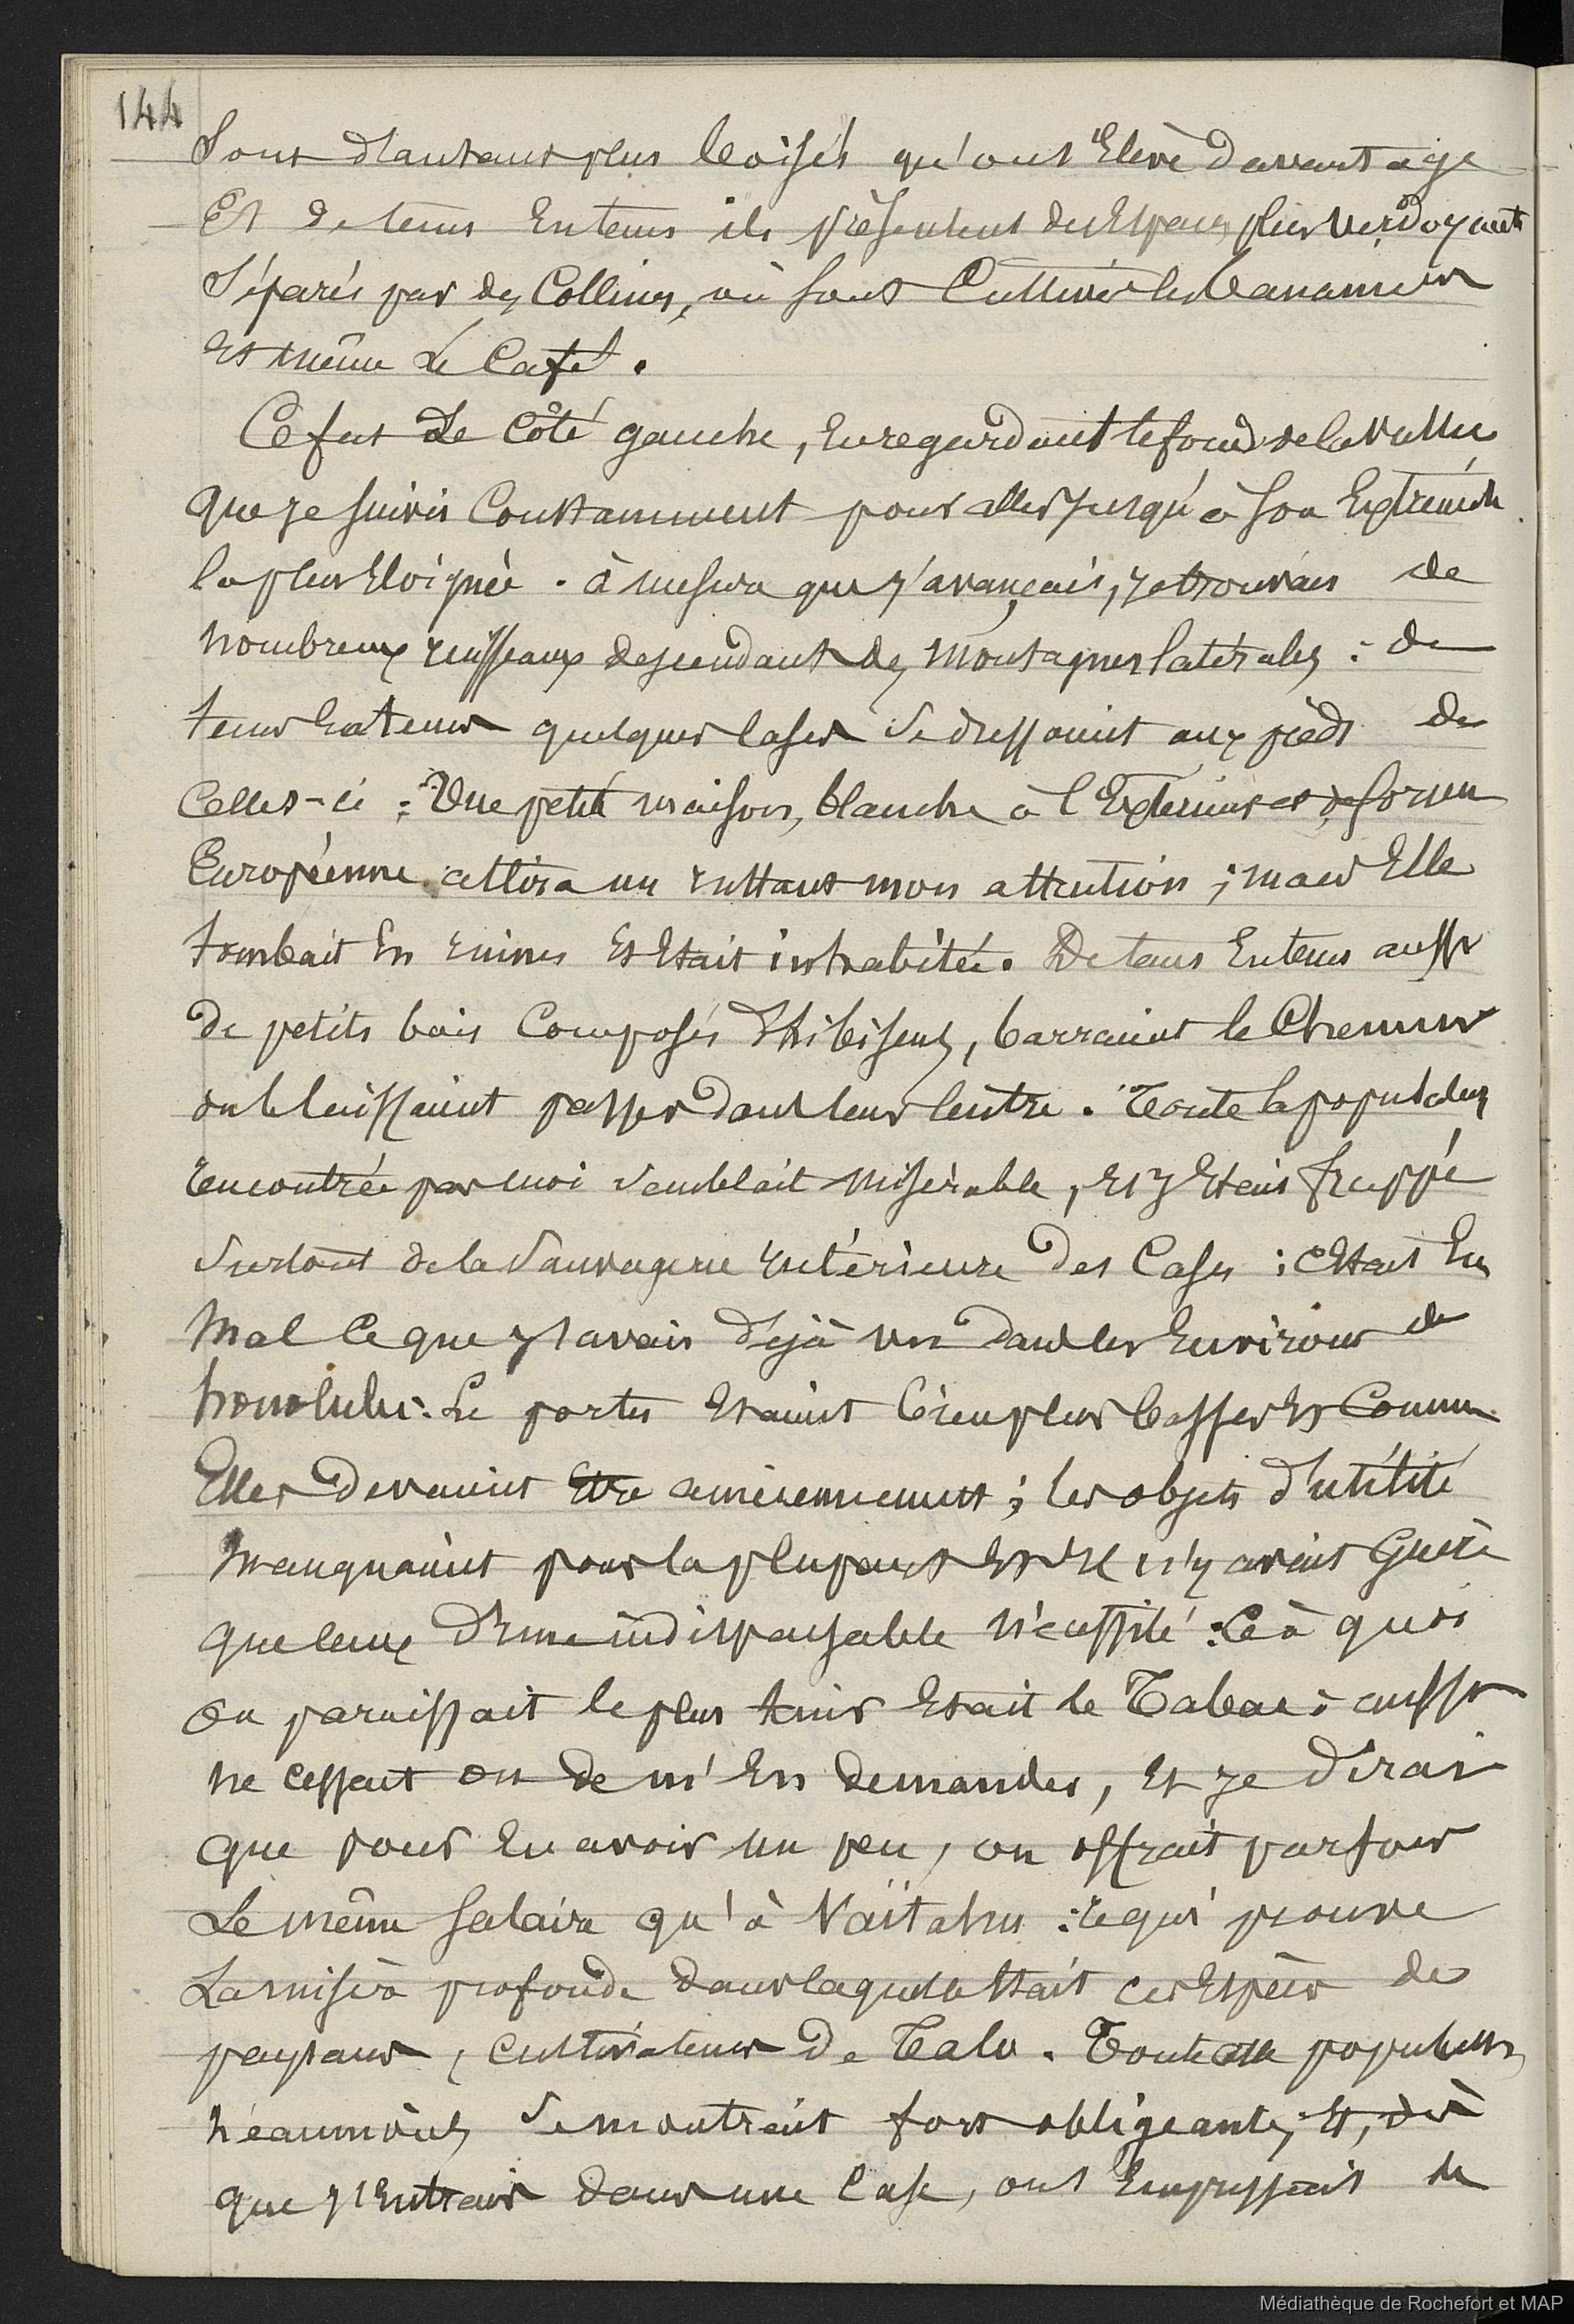 144
Sont d'autant plus boisés qu'ont s'élève davantage
Et de tems en tems ils présentent des espaces plus verdoyants
Séparés par des Collines, où sont Cultivés les bananiers
et même Le Café.
Ce fut Le Côté gauche, en regardant le fond de la vallée,
que je suivis Constamment pour aller jusqu'à son Extrémité
la plus Eloignée. à mesure que j'avançais, je trouvais de
nombreux ruisseaux descendant des montagnes latérales : de
tems en tems quelques cases se dressaient aux pieds de
Celles-ci : Une petite maison, blanche à l'Extérieur et de forme
Européenne attira un instant mon attention ; mais Elle
tombait En ruines Et Etait inhabitée. De tems En tems aussi
De petits bois Composés d'hibiscus, barraient le Chemin
ou le laissaient passer dans leur centre. Toute la population
rencontrée par moi semblait misérable, et j'Etais frappé
surtout de la Sauvagerie intérieure Des Cases : c'Etait En
mal Ce que j'avais Déjà vu dans les Environs de
honolulu. Le portes Etaient bien plus basses Et Comme
Elles Devaient Etre anciennement ; les objets d'utilité
manquaient pour la plupart Et il n'y avait Guère
que ceux d'une indispensable nécessité : Ce à quoi
On paraissait le plus tenir Etait le Tabac : aussi
ne cessait on de m'En demander, Et je dirai
que pour En avoir un peu, on offrait parfois
Le même salaire qu'à Vaïtahu : ce qui prouve
La misère profonde dans laquelle Etait ces Espèces de
paysans, cultivateurs De Talo. Toute cette population
néanmoins se montrait fort obligeante, Et, dès
que j'Entrais dans une Case, ont s'Empressait de
Médiathèque de Rochefort et MAP